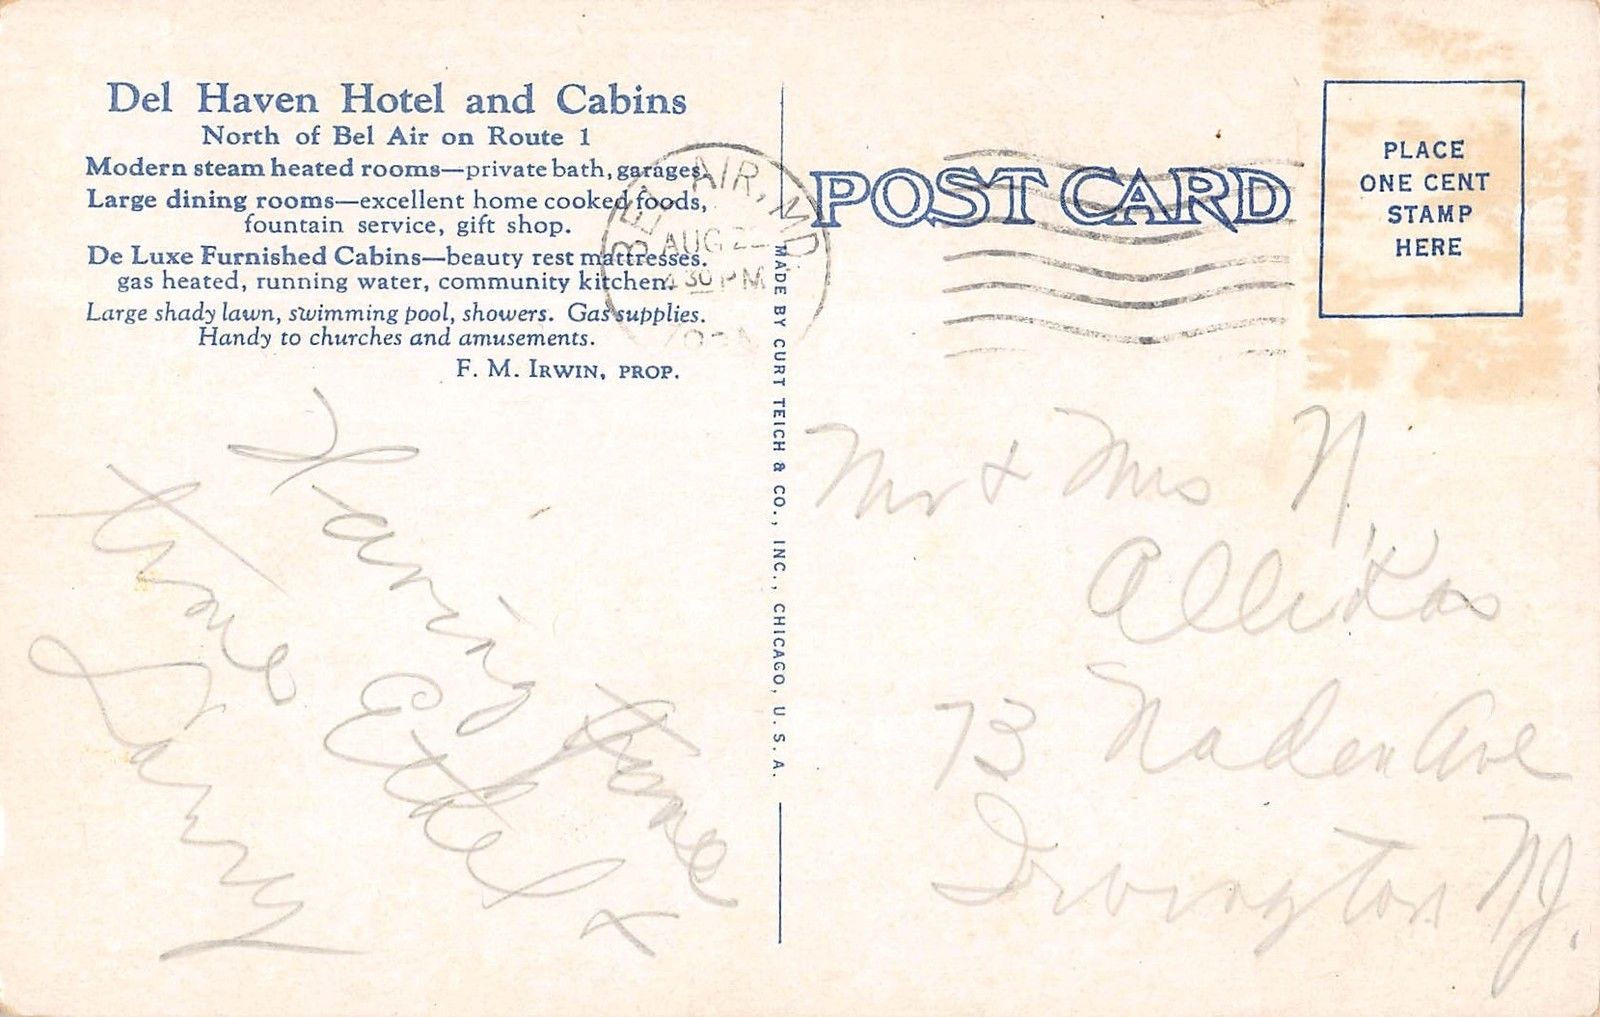 Del Haven Hotel and Cabins
North of Bel Air on Route 1
Modern steam heated rooms—private bath, garages.
Large dining rooms—excellent home cooked foods,
fountain service, gift shop.
De Luxe Furnished Cabins—beauty rest mattresses.
gas heated, running water, community kitchen.
Large shady lawn, swimming pool, showers. Gas supplies.
Handy to churches and amusements.
F. M. IRWIN, PROP.
Having fine
time Ethel +
Larry
MADE BY CURT TEICH & CO., INC., CHICAGO, U. S. A.
BEL AIR, MD.
AUG
4 30 PM
POST CARD
PLACE
ONE CENT
STAMP
HERE
Mr + Mrs N.
73 Ave
Irvington NJ.